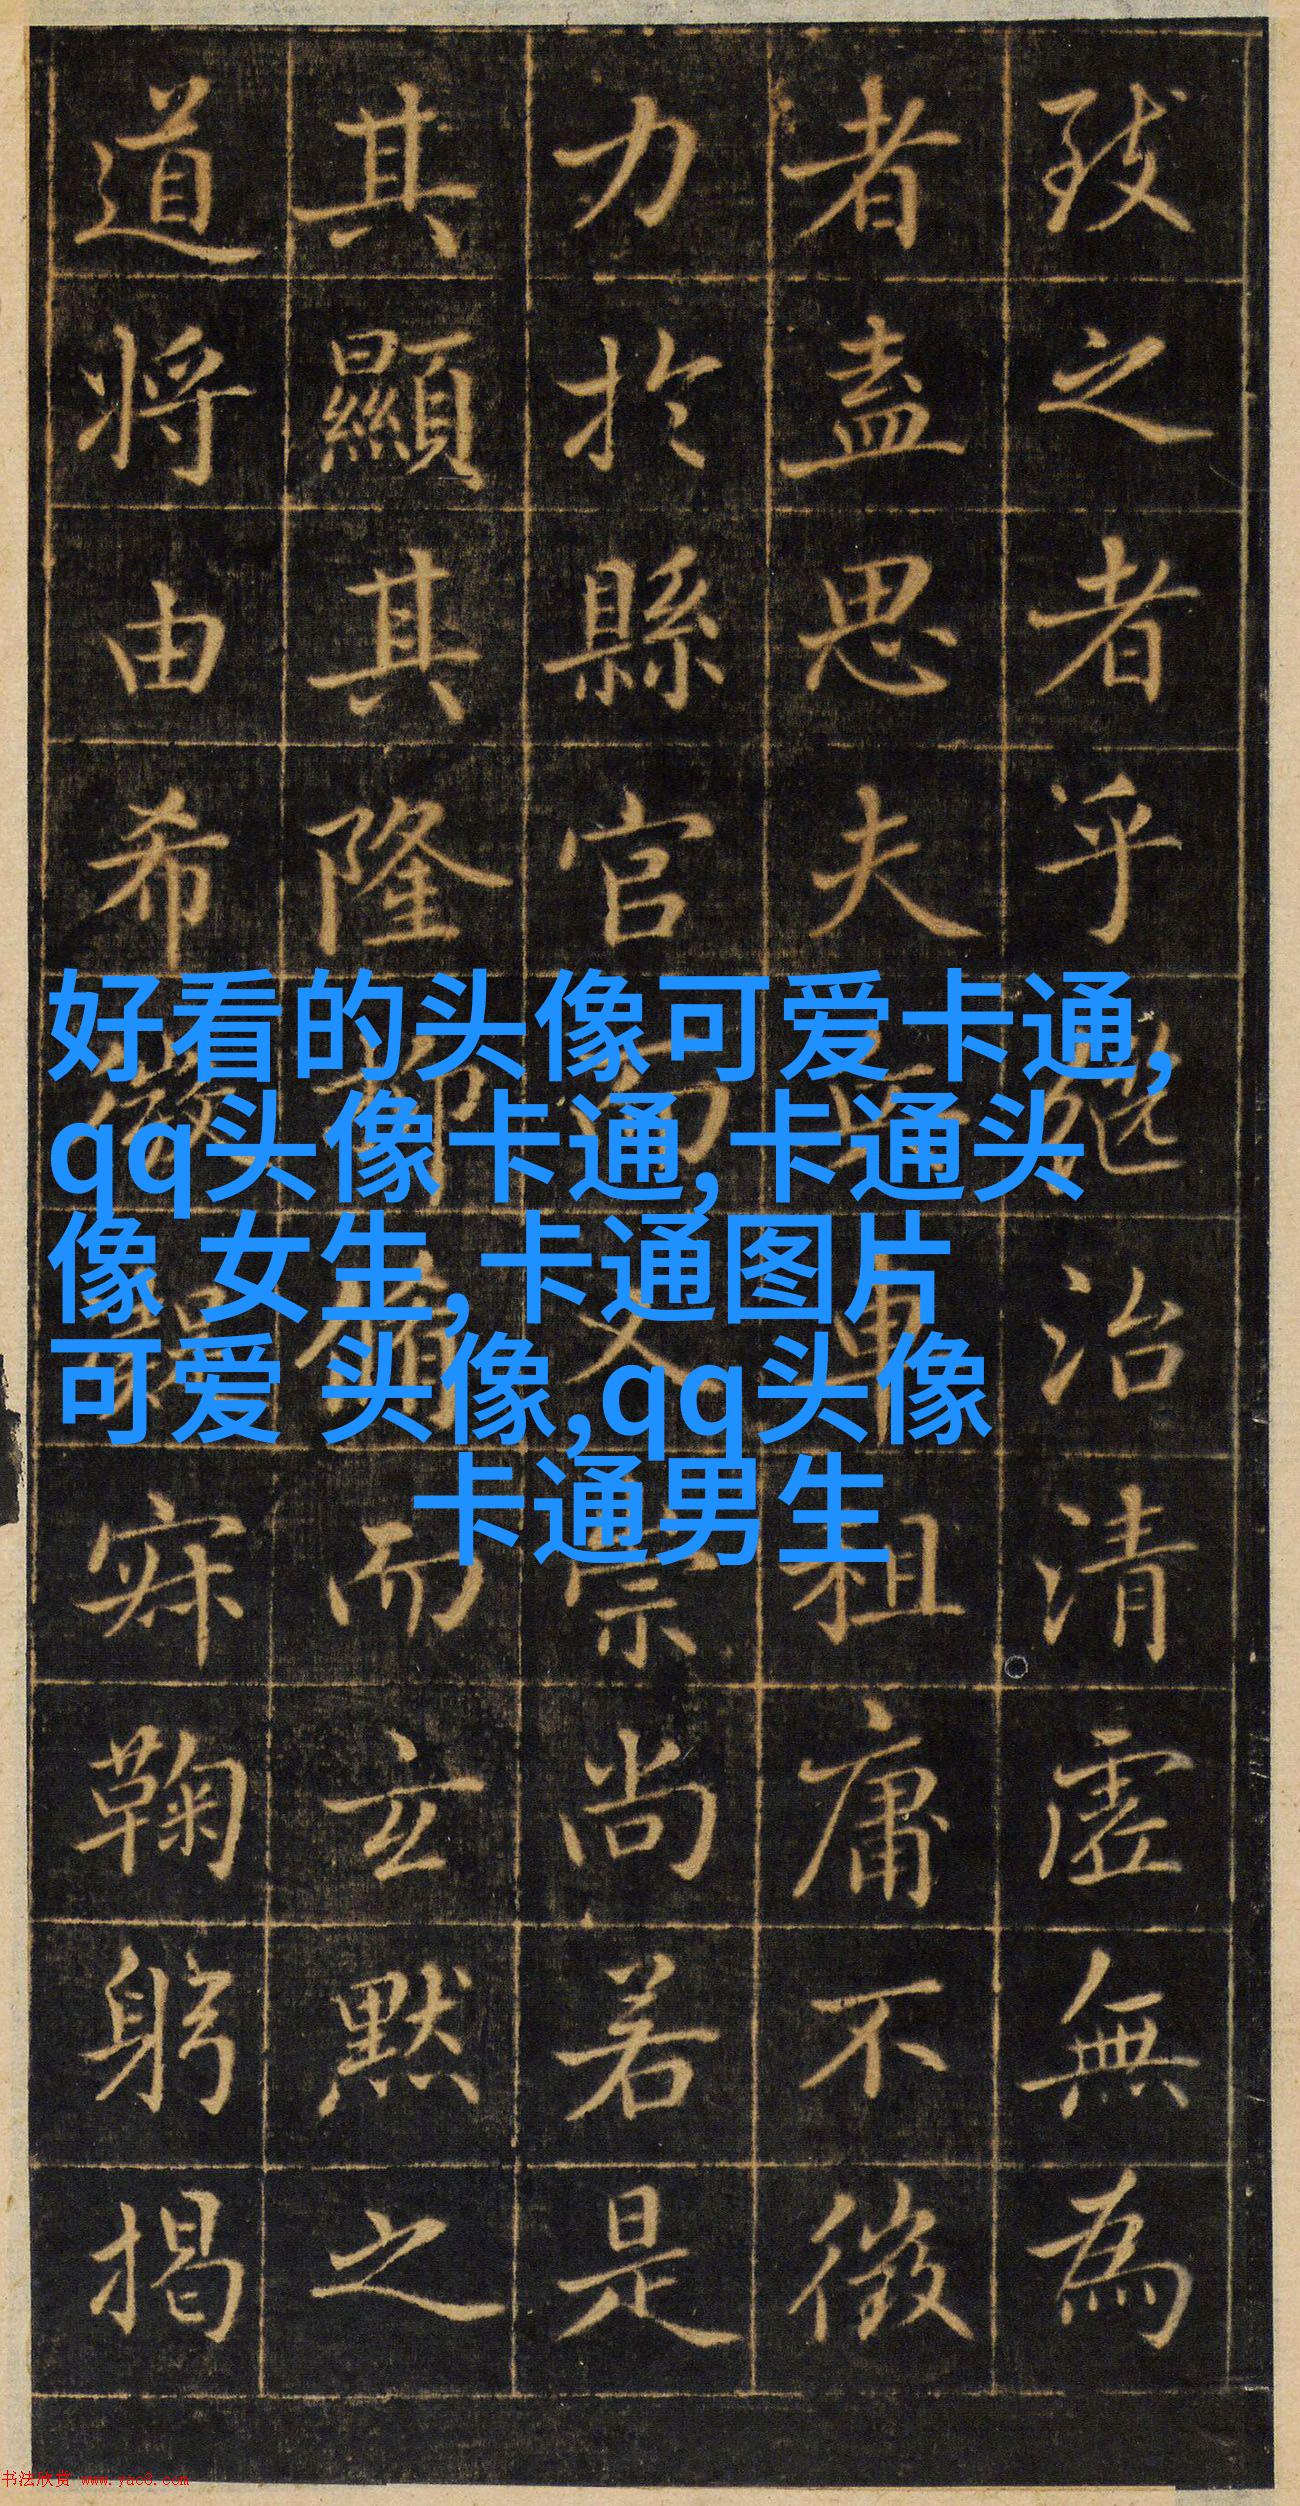 好看的头像可爱卡通,
qq头像 卡通,卡通头
像 女生,卡通图片
可爱 头像,qq头像
卡通男生
致之者乎治清虛無為
者盡思夫無租庸不徵
力於縣官而又宗尚若是
其顯其隆而玄默之
道將由希微寐鞠躬揭
书法欣赏 www.yac8.com